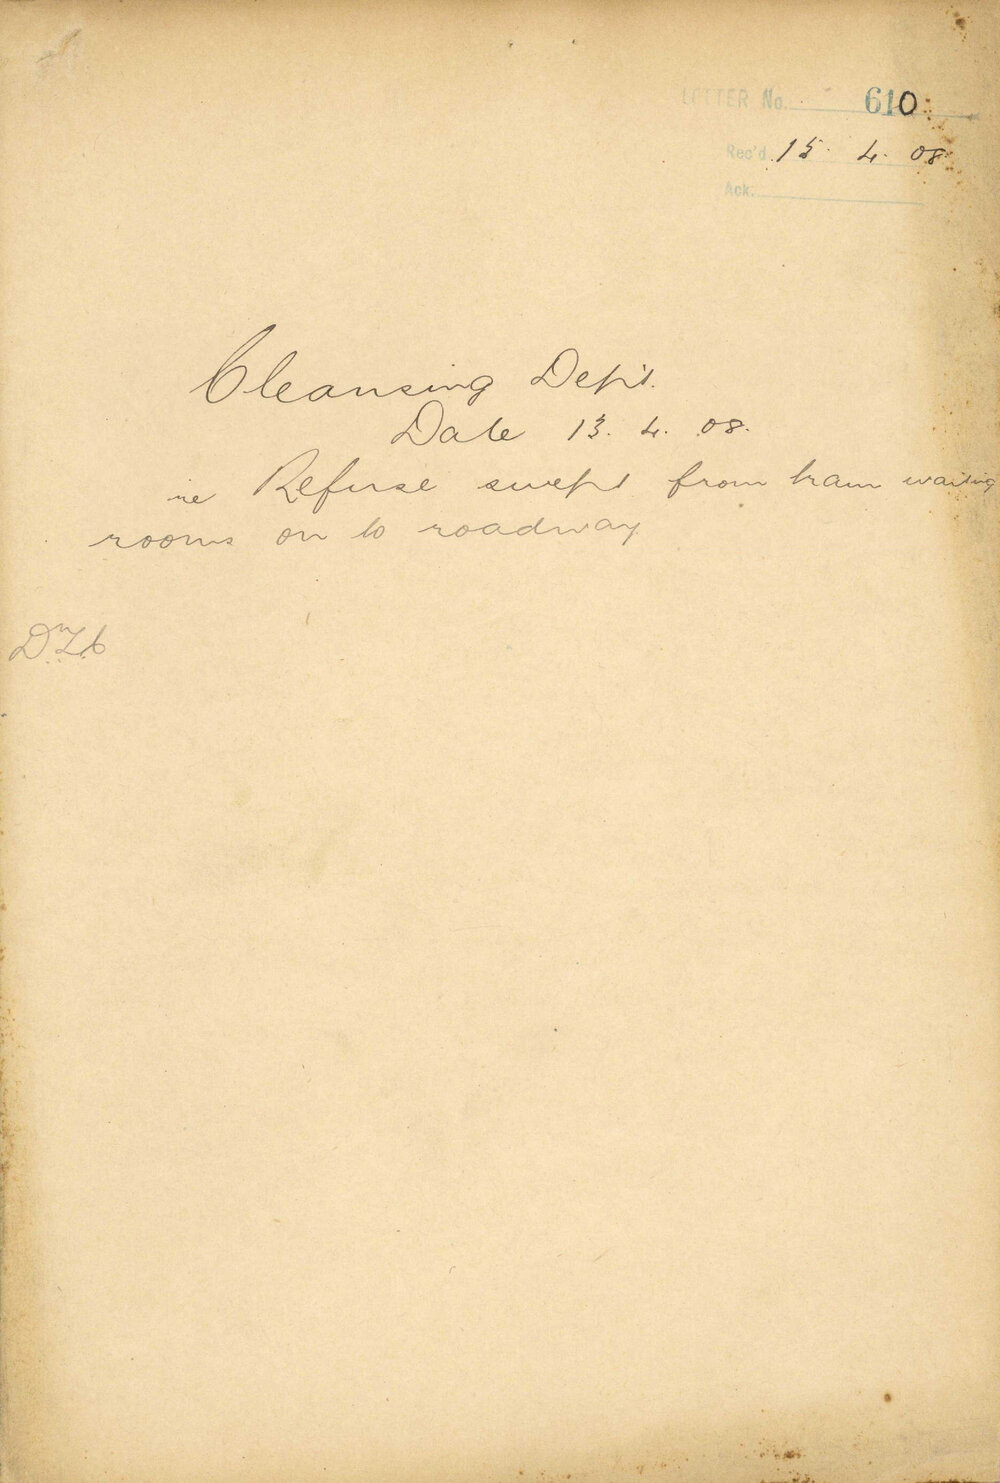 LETTER No. 610
Rec'd 15. 4. 08
Ack.
Cleansing Dep't.
Date 13. 4. 08.
re Refuse swept from tram waiting
rooms on to roadway